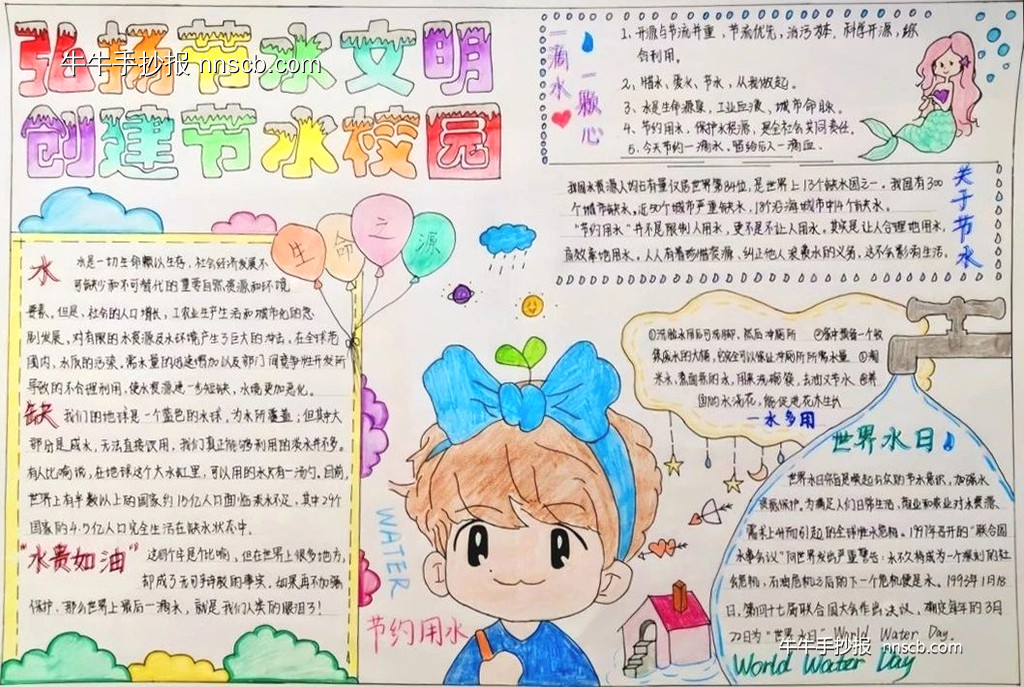 弘扬节水文明
牛牛手抄报 nnscb.com
创建节水校园
一滴水
一颗心
1、开源与节流并重，节流优先，治污为本，科学开源，综
合利用。
2、惜水、爱水、节水，从我做起。
3、水是生命源泉、工业血液、城市命脉。
4、节约用水，保护水资源，是全社会共同责任。
5、今天节约一滴水，留给后人一滴血。
关于节水
我国水资源人均占有量仅居世界第84位，是世界上13个缺水国之一。我国有300
个城市缺水，近50个城市严重缺水，18个沿海城市中14个缺水。
“节约用水”并不是限制人用水，更不是不让人用水。其实是让人合理地用水，
高效率地用水。人人有着珍惜资源、纠正他人浪费水的义务，这不会影响生活。
生命之源
水
水是一切生命赖以生存，社会经济发展不
可缺少和不可替代的重要自然资源和环境
要素。但是，社会的人口增长，工农业生产生活和城市化的急
剧发展，对有限的水资源及水环境产生了巨大的冲击，在全球范
围内，水质的污染，需水量的迅速增加以及部门间竞争性开发所
导致的不合理利用，使水资源进一步短缺，水境更加恶化。
缺
我们的地球是一个蓝色的水球，为水所覆盖；但其中大
部分是咸水，无法直接饮用，我们真正能够利用的淡水并不多。
有人比喻说，在地球这个大水缸里，可以用的水只有一汤勺。目前，
世界上有半数以上的国家约15亿人口面临淡水不足，其中29个
国家的4.5亿人口完全生活在缺水状态中。
“水贵如油”
这四个字是个比喻，但在世界上很多地方，
却成了无可争辩的事实，如果再不加强
保护，那么世界上最后一滴水，就是我们人类的眼泪了！
WATER
节约用水
①洗脸水用后可洗脚，然后冲厕所 ②家中预备一个收
集废水的大桶，它完全可以保证冲厕所所需水量 ③淘
米水，煮面条的水，用来洗碗筷，去油又节水 ④养
鱼的水浇花，能促进花木生长
一水多用
世界水日
世界水日宗旨是唤起公众的节水意识，加强水
资源保护。为满足人们日常生活、商业和农业对水资源
需求上升而引起的全球性水危机。1977年召开的“联合国
水事会议”向世界发出严重警告：水不久将成为一个深刻的社
会危机，石油危机之后的下一个危机便是水。1993年1月18
日，第四十七届联合国大会作出决议，确定每年的3月
22日为“世界水日”World Water Day。
牛牛手抄报 nnscb.com
World Water Day